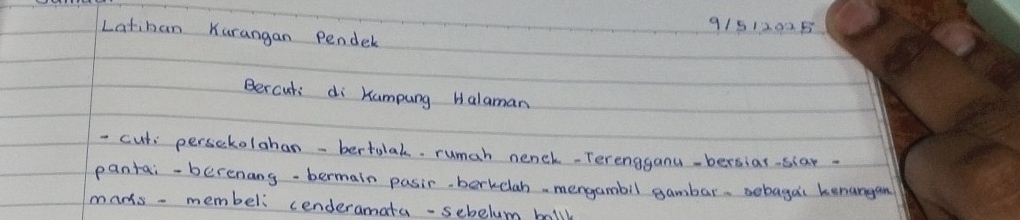 Latihan Karangan Pendek 9/5/2025
Bercuti di Kampung Halaman
- cuti persekolahan - bertolak - rumah nenek - Terengganu - bersiar-siar -
pantai - berenang - bermain pasir - berkelah - mengambil gambar - sebagai kenangan
manis - membeli cenderamata - sebelum balik